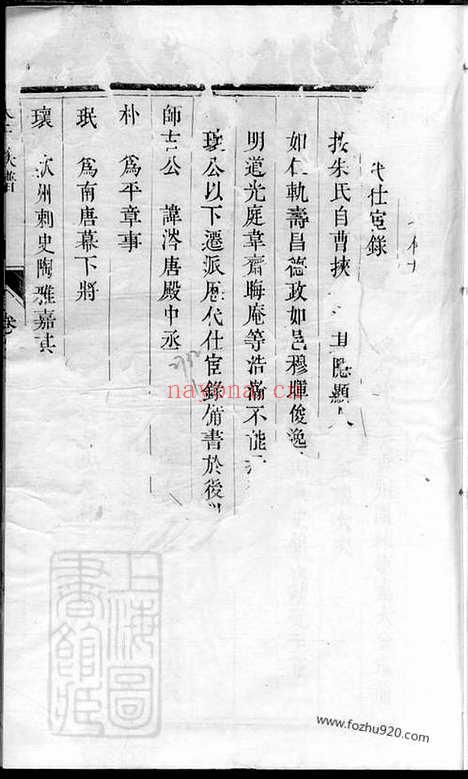 代仕宦錄
按朱氏自曹挾
如仁軌壽昌德政如邑穆暉俊逸
明道光庭韋齋晦庵等浩瀚不能
瓌公以下遷派歷代仕宦錄備書於後
師古公 諱涔唐殿中丞
朴 為平章事
珉 為南唐幕下將
瓌 州刺史陶雅嘉其
族譜
卷
上海圖書館藏
nayona.cn
www.fozhu920.com